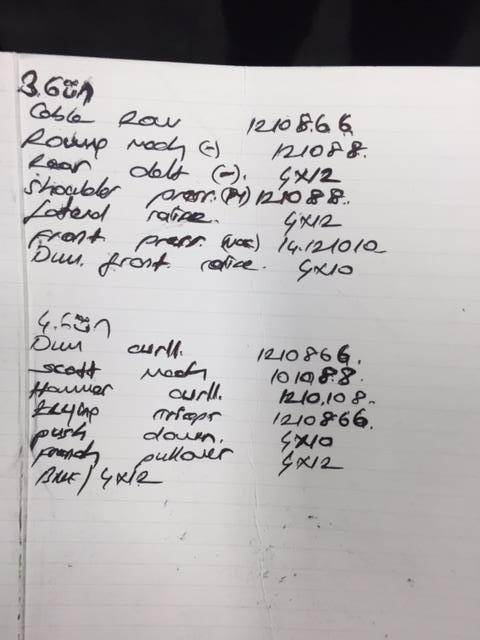 3.Gün
Cable Row 12 10 8.6 6
Rowing mach (-) 12 10 8 8.
Rear delt (-). 4x12
Shoulder press. 12 10 8 8.
Lateral raise. 4x12
Front press. (mac) 14.12 10 10
Dum. front. raise. 4x10
4.Gün
Dum curll. 12 10 8 6 6.
Scott mach 10 10 8.8.
Hammer curll. 12 10.10 8.
Lying triceps 12 10 8 6 6.
push down. 4x10
pullover 4x12
4x12